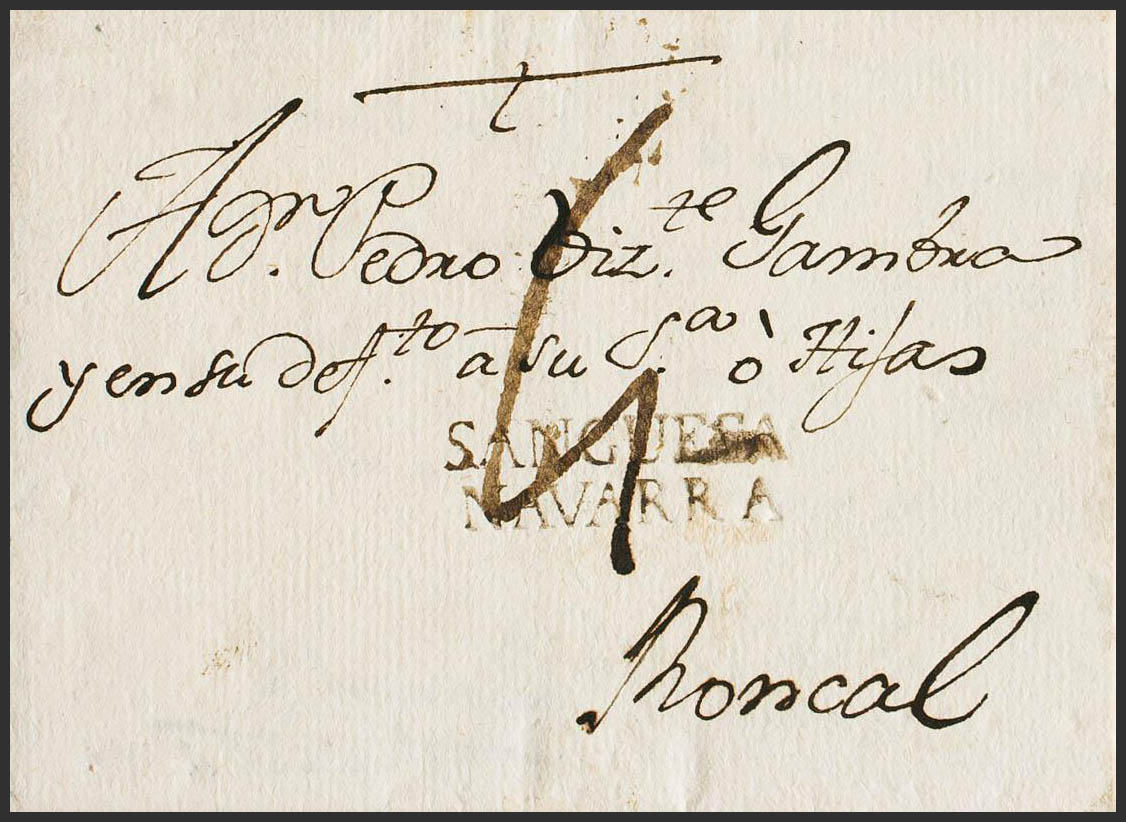 A Dn. Pedro Vizte. Gambra
y en su defto. a su Sra. ò Hijas
4
SANGUESA
NAVARRA
Roncal